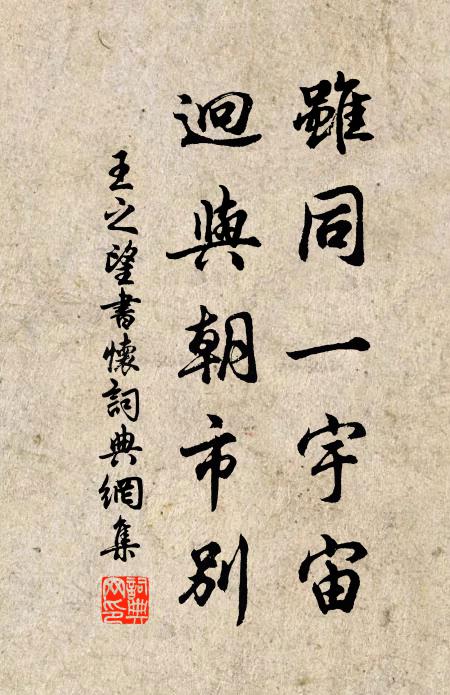 雖同一宇宙
迥與朝市別
王之望書懷詞典網集
詞典网印